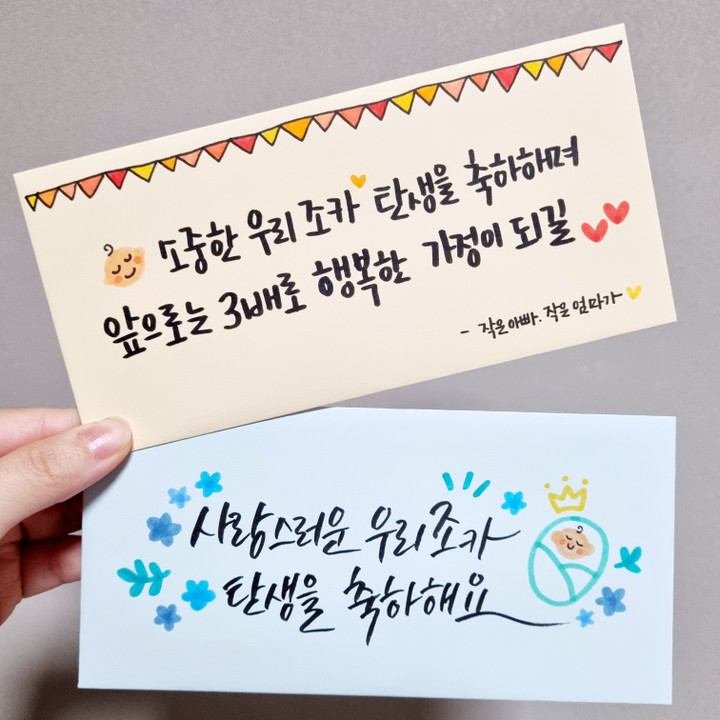 소중한 우리 조카 탄생을 축하해며
앞으로는 3배로 행복한 가정이 되길
- 작은아빠.작은엄마가
사랑스러운 우리 조카
탄생을 축하해요